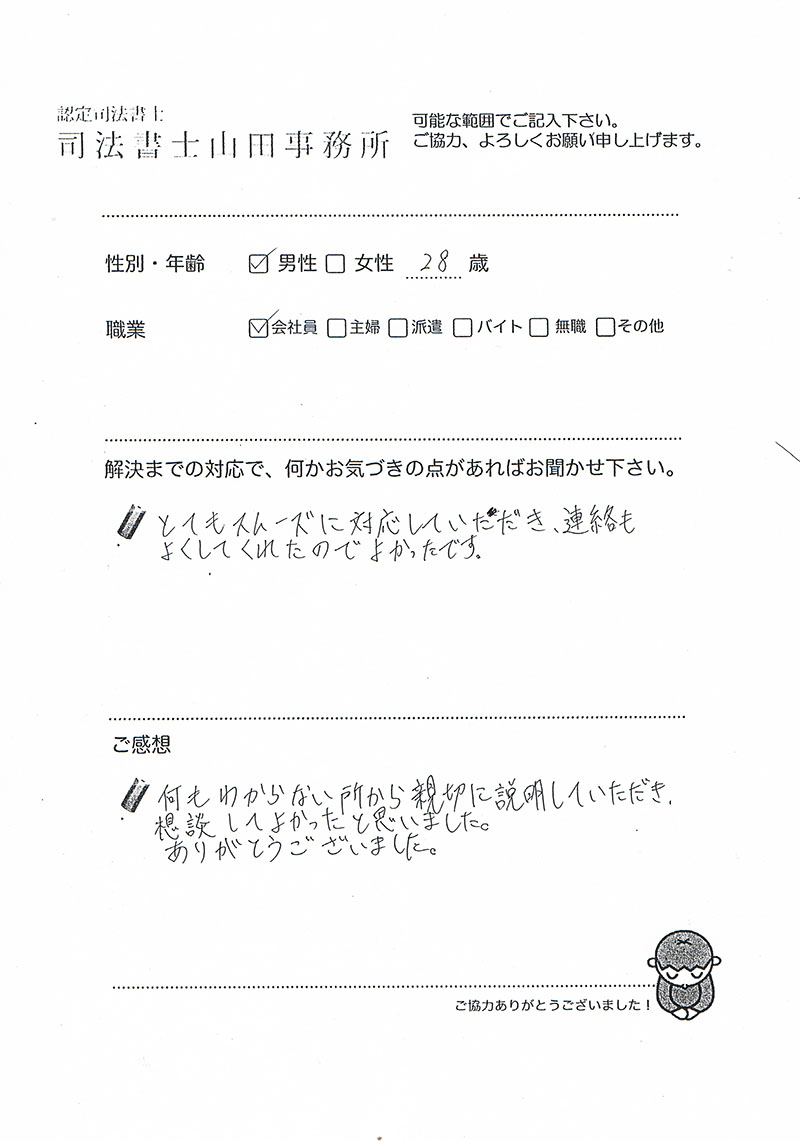 認定司法書士
司法書士山田事務所
可能な範囲でご記入下さい。
ご協力、よろしくお願い申し上げます。
性別・年齢 ☑ 男性 ☐ 女性 28 歳
職業 ☑ 会社員 ☐ 主婦 ☐ 派遣 ☐ バイト ☐ 無職 ☐ その他
解決までの対応で、何かお気づきの点があればお聞かせ下さい。
とてもスムーズに対応していただき、連絡も
よくしてくれたのでよかったです。
ご感想
何もわからない所から親切に説明していただき、
想談してよかったと思いました。
ありがとうございました。
ご協力ありがとうございました！